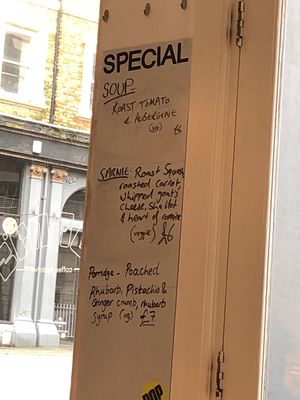 SPECIAL
SOUP
ROAST TOMATO
& AUBERGINE
(VG) £6
SARNIE: Roast Squash,
roasted carrot,
whipped goats
cheese, Shallot
& heart of romaine
(veggie) £6
Porridge - Poached
Rhubarb, Pistachio &
Ginger crumb, rhubarb
Syrup (vg) £7
POP